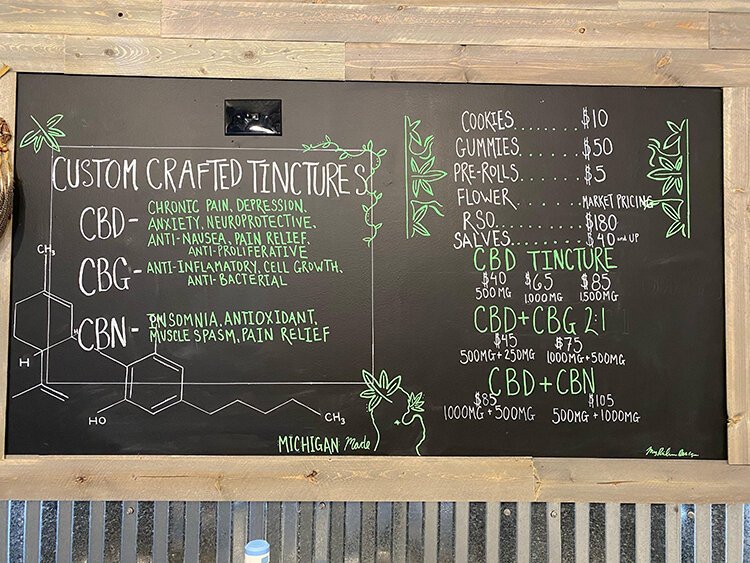 CUSTOM CRAFTED TINCTURES
CBD- CHRONIC PAIN, DEPRESSION,
ANXIETY, NEUROPROTECTIVE,
ANTI-NAUSEA, PAIN RELIEF,
ANTI-PROLIFERATIVE
CBG- ANTI-INFLAMATORY, CELL GROWTH,
ANTI-BACTERIAL
CBN- INSOMNIA, ANTIOXIDANT,
MUSCLE SPASM, PAIN RELIEF
CH₂
H
HO
CH₃
MICHIGAN Made
COOKIES......$10
GUMMIES......$50
PRE-ROLLS.....$5
FLOWER......MARKET PRICING
RSO.......$180
SALVES.......$40 and UP
CBD TINCTURE
$40 $65 $85
500MG 1,000MG 1,500MG
CBD+CBG 2:1
$45 $75
500MG+250MG 1000MG+500MG
CBD+CBN
$85 $105
1000MG+500MG 500MG+1000MG